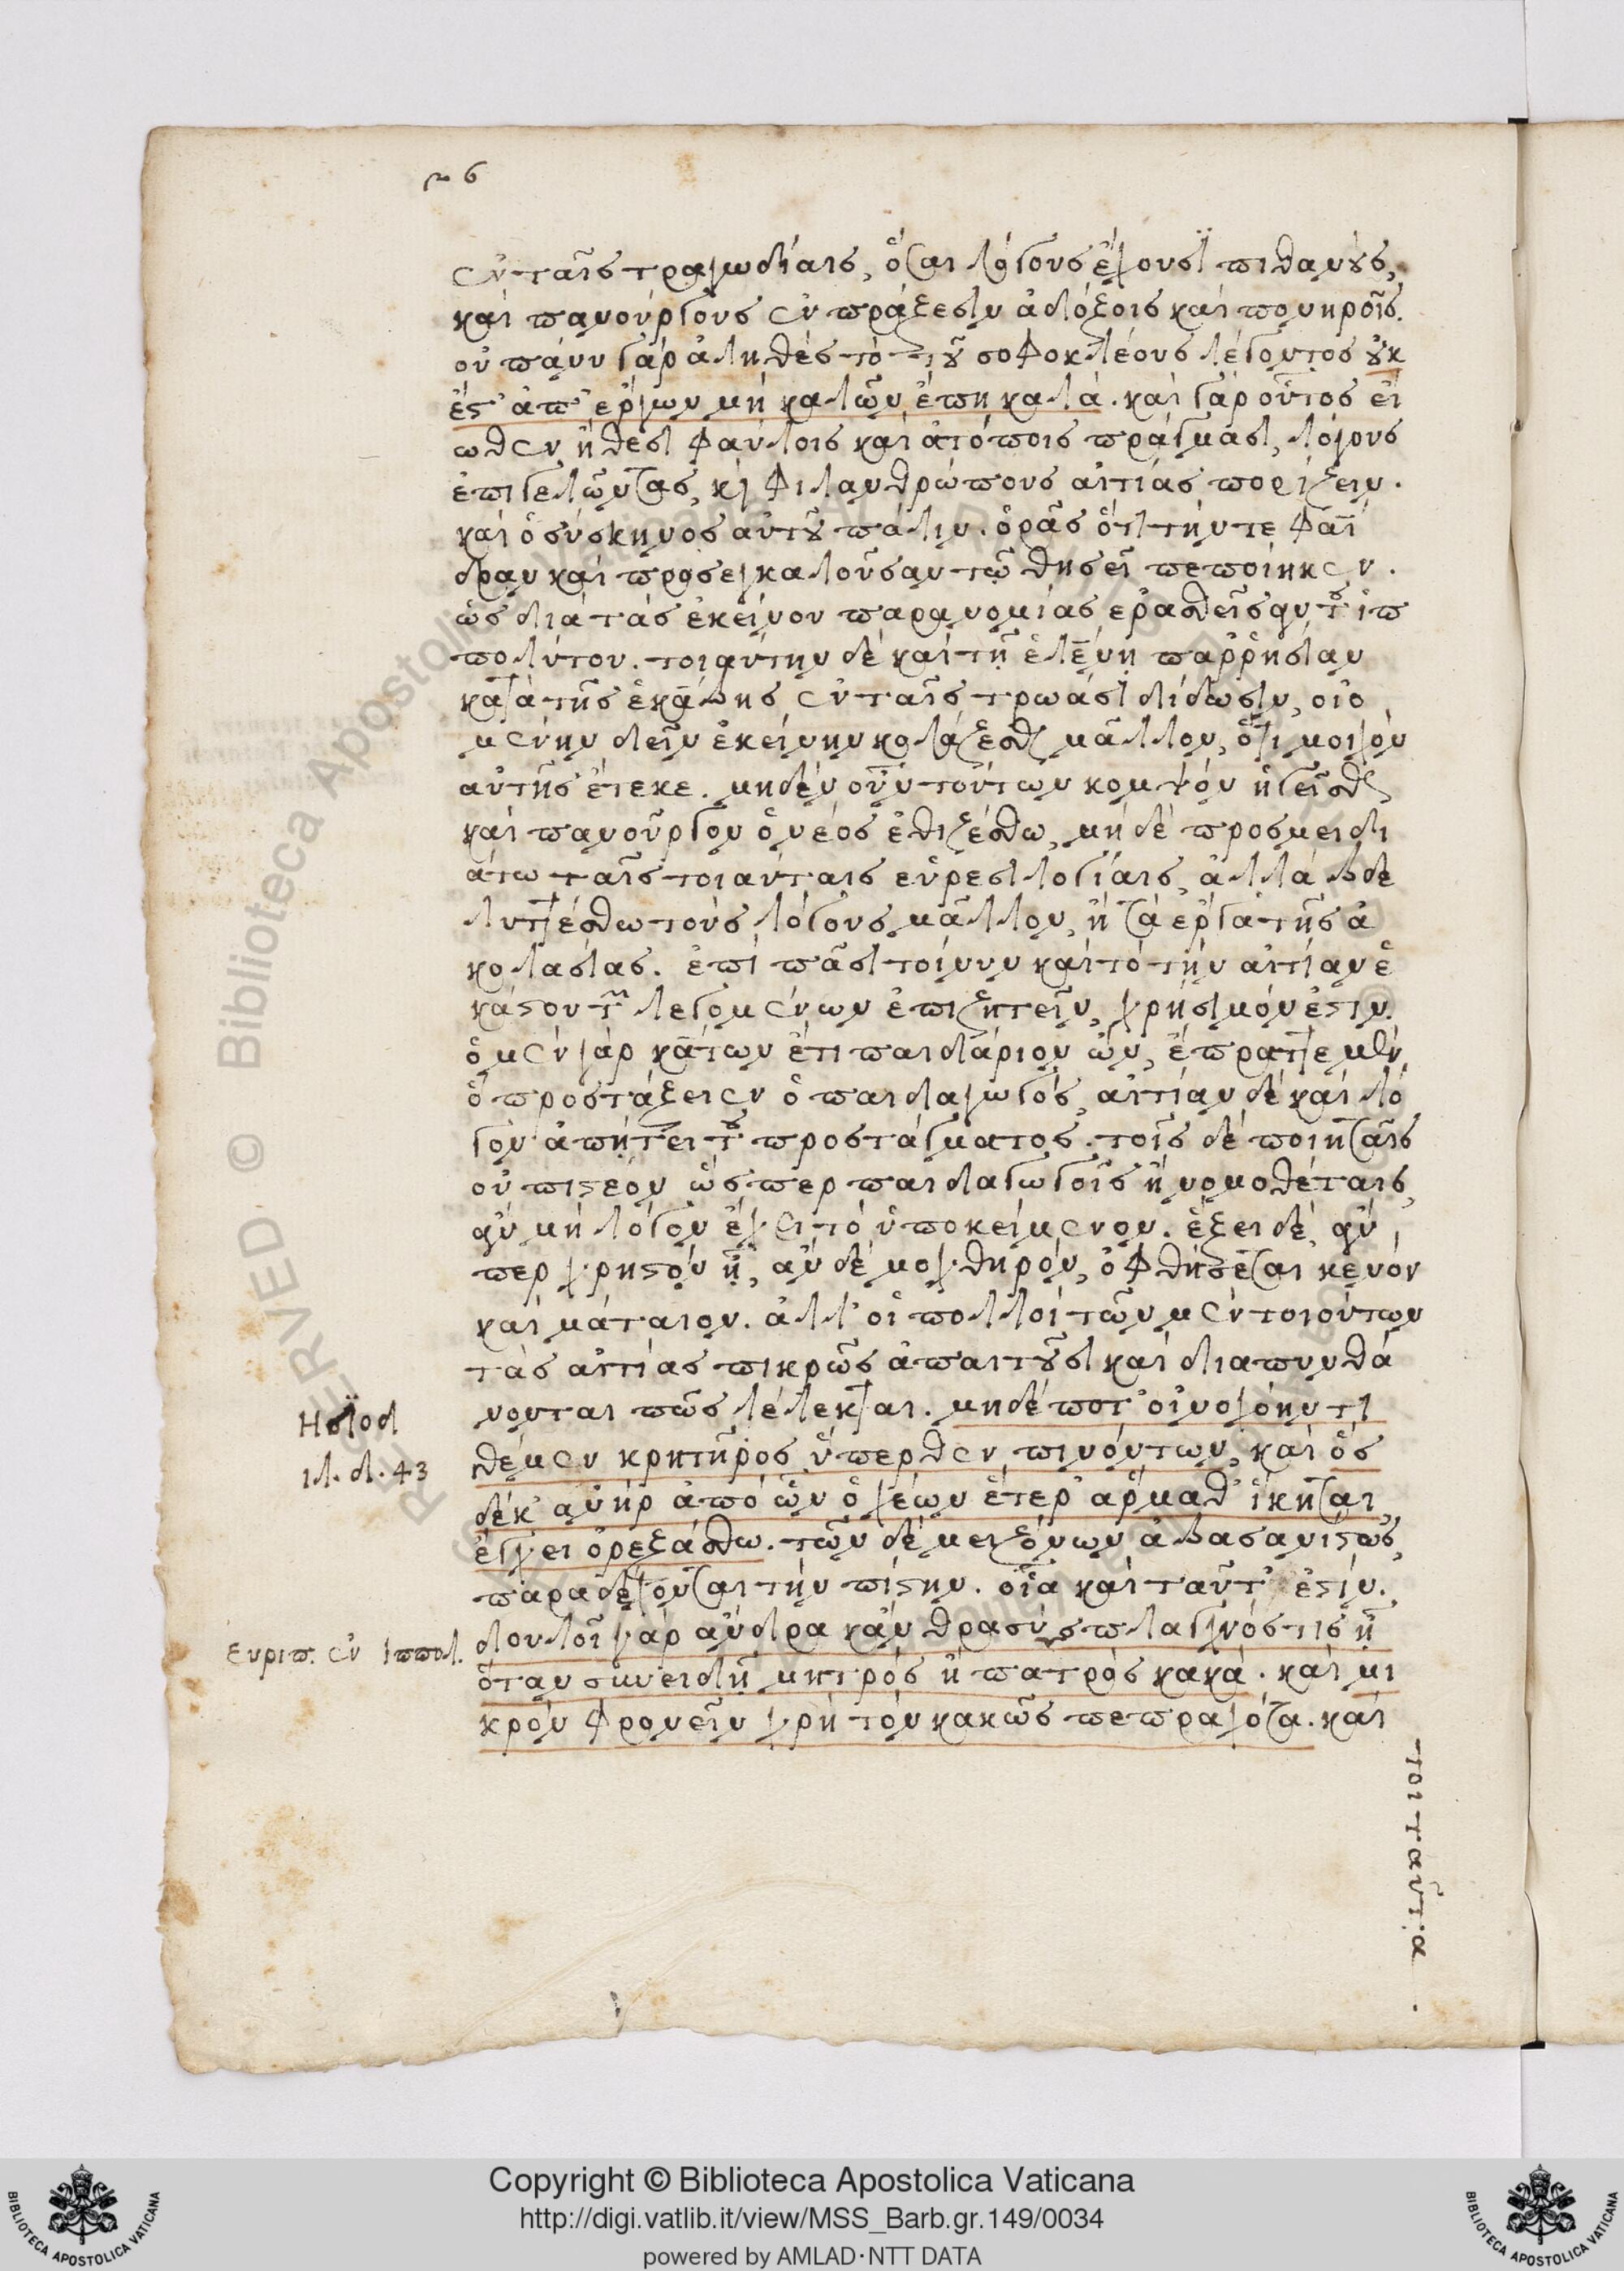 ϛ 6
ἐν ταῖς τραγωδίαις, ὅσαι λόγους ἔχουσι πιθανοὺς,
καὶ πανούργους ἐν πράξεσιν ἀδόξοις καὶ πονηροῖς.
οὐ πάνυ γὰρ ἀληθὲς τὸ τοῦ σοφοκλέους λέγοντος οὐκ
ἔστ' ἀπ' ἔργων μὴ καλῶν ἔπη καλά. καὶ γὰρ οὗτος εἴ
ωθεν ἤθεσι φαύλοις καὶ ἀτόποις πράγμασι, λόγους
ἐπιγελῶντας, καὶ φιλανθρώπους αἰτίας πορίζειν.
καὶ ὁ σύσκηνος αὐτοῦ πάλιν. ὁρᾶς ὅτι τήν τε φαί
δραν καὶ προσεγκαλοῦσαν τῷ θησεῖ πεποίηκεν.
ὡς διὰ τὰς ἐκείνου παρανομίας ἐρασθεῖσαν τοῦ ἱπ
πολύτου. τοιαύτην δὲ καὶ τῇ ἑλένῃ παῤῥησίαν
κατὰ τῆς ἑκάβης ἐν ταῖς τρωάσι δίδωσιν, οἰο
μένην δεῖν ἐκείνην κολάζεσθαι μᾶλλον, ὅτι μοιχὸν
αὐτῆς ἔτεκε. μηδὲν οὖν τούτων κομψὸν ἡγεῖσθαι
καὶ πανοῦργον ὁ νέος ἐθιζέσθω, μὴ δὲ προσμειδι
άτω ταῖς τοιαύταις εὑρεσιλογίαις, ἀλλὰ βδε
λυττέσθω τοὺς λόγους μᾶλλον, ἢ τὰ ἔργα τῆς ἀ
κολασίας. ἐπὶ πᾶσι τοίνυν καὶ τὸ τὴν αἰτίαν ἑ
κάστου τῶν λεγομένων ἐπιζητεῖν, χρήσιμόν ἐστιν.
ὁ μὲν γὰρ κάτων ἔτι παιδάριον ὢν, ἔπραττε μὲν
ὃ προστάξειεν ὁ παιδαγωγός, αἰτίαν δὲ καὶ λό
γον ἀπῄτει τοῦ προστάγματος. τοῖς δὲ ποιηταῖς
οὐ πιστέον ὥσπερ παιδαγωγοῖς ἢ νομοθέταις,
ἂν μὴ λόγον ἔχῃ τὸ ὑποκείμενον. ἕξει δὲ, ἄν
περ χρηστὸν ᾖ, ἂν δὲ μοχθηρόν, ὀφθήσεται κενὸν
καὶ μάταιον. ἀλλ' οἱ πολλοὶ τῶν μὲν τοιούτων
τὰς αἰτίας πικρῶς ἀπαιτοῦσι καὶ διαπυνθά
νονται πῶς λέλεκται. μηδέ ποτ' οἰνοχόην τι
θέμεν κρητῆρος ὕπερθεν, πινόντων, καὶ ὅς
δέ κ' ἀνὴρ ἀπὸ ὧν ὀχέων ἕτερ' ἅρμαθ' ἵκηται
ἔγχει ὀρεξάσθω. τῶν δὲ μειζόνων ἀβασανίστως,
παραδέχονται τὴν πίστην. οἷα καὶ ταῦτ' ἐστίν.
δουλοῖ γὰρ ἄνδρα κἂν θρασύσπλαγχνός τις ᾖ
ὅταν συνειδῇ μητρὸς ἢ πατρὸς κακά. καὶ μι
κρὸν φρονεῖν χρὴ τὸν κακῶς πεπραγότα. καὶ
τοι ταῦτα
Ησϊοδ
ιλ. δ. 43
Ευριπ. ἐν Ιππολ.
RESERVED © Biblioteca Apostolica Vaticana
BIBLIOTECA APOSTOLICA VATICANA
Copyright © Biblioteca Apostolica Vaticana
http://digi.vatlib.it/view/MSS_Barb.gr.149/0034
powered by AMLAD·NTT DATA
BIBLIOTECA APOSTOLICA VATICANA